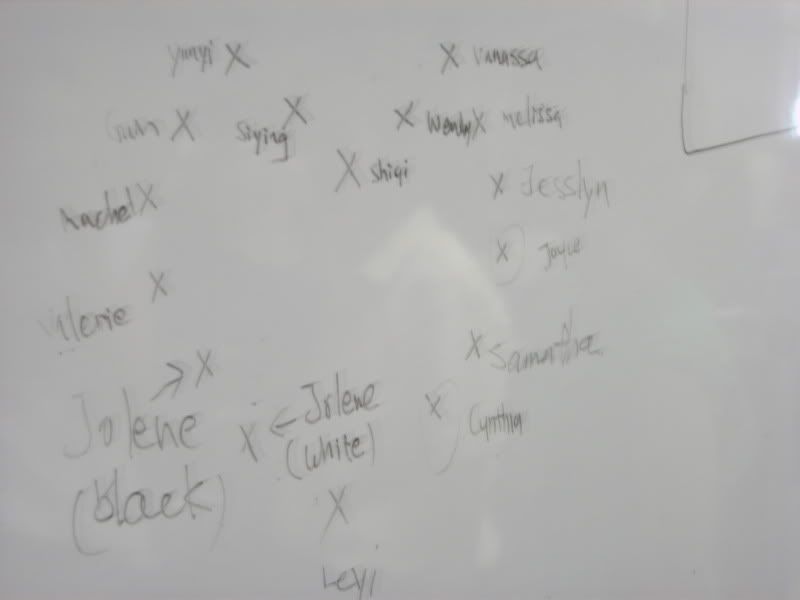 yunyi X X vanassa
X Siying X X Wendy X melissa
X shiqi
Rachel X X Jesslyn
X Joyce
Valerie X
X Samantha
Jolene (black) → X
X ← Jolene (White)
X Cynthia
X
Leyi